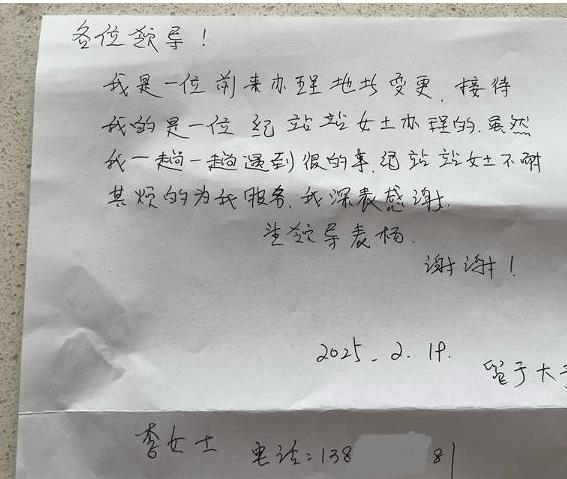 各位领导！
我是一位前来办理地址变更，接待
我的是一位纪站站女士办理的.虽然
我一趟一趟遇到很的事.纪站站女士不耐
其烦的为我服务.我深表感谢.
望领导表杨.
谢谢！
2025.2.19.
留于大
李女士 电话：138 81